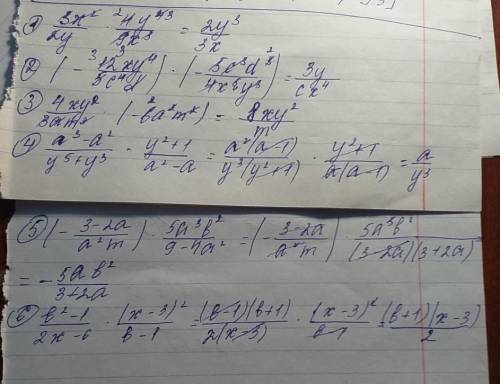 ① 3x²/2y · 4y⁴/9x³ = 2y³/3x
② (-12xy⁴/5c⁴d) · (-5c³d²/4x⁵y³) = 3y/cx⁴
③ 4xy²/3am² · (-6a²m²) = 8xy²/m
④ a³-a²/y⁵+y³ · y²+1/a²-a = a²(a-1)/y³(y²+1) · y²+1/a(a-1) = a/y³
⑤ (-3-2a/a²m) · 5a³b²/9-4a² = (-3-2a/a²m) · 5a³b²/(3-2a)(3+2a) =
= -5ab²/3+2a
⑥ b²-1/2x-6 · (x-3)²/b-1 = (b-1)(b+1)/2(x-3) · (x-3)²/b-1 = (b+1)(x-3)/2